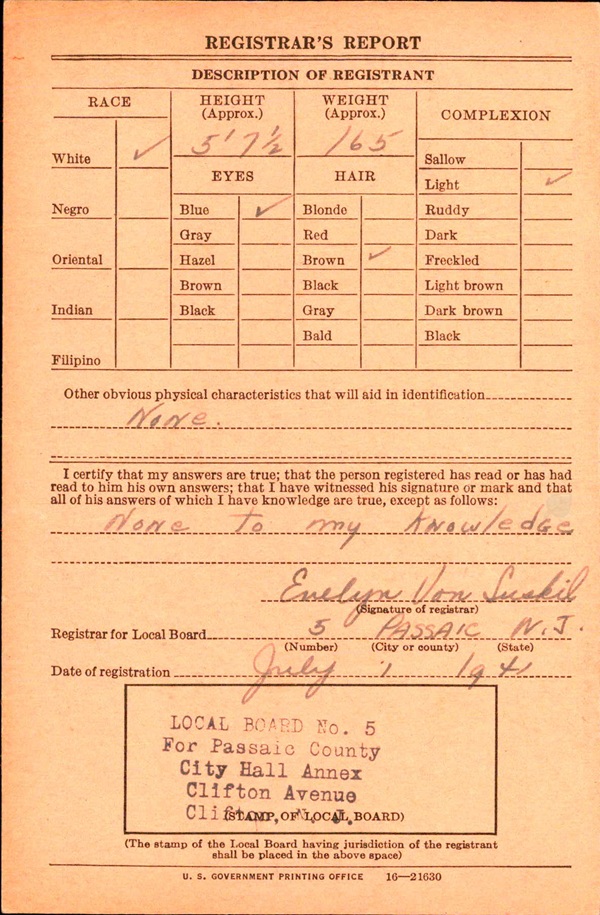 REGISTRAR'S REPORT
DESCRIPTION OF REGISTRANT
RACE
HEIGHT
(Approx.)
WEIGHT
(Approx.)
COMPLEXION
5' 7½
165
White ✓
Sallow
EYES
HAIR
Light ✓
Negro
Blue ✓
Blonde
Ruddy
Gray
Red
Dark
Oriental
Hazel
Brown ✓
Freckled
Brown
Black
Light brown
Indian
Black
Gray
Dark brown
Bald
Black
Filipino
Other obvious physical characteristics that will aid in identification
None.
I certify that my answers are true; that the person registered has read or has had
read to him his own answers; that I have witnessed his signature or mark and that
all of his answers of which I have knowledge are true, except as follows:
None to my knowledge
Evelyn Von Suskil
(Signature of registrar)
Registrar for Local Board 5 PASSAIC N.J.
(Number) (City or county) (State)
Date of registration July 1 1941
LOCAL BOARD No. 5
For Passaic County
City Hall Annex
Clifton Avenue
Clifton, N. J.
(STAMP OF LOCAL BOARD)
(The stamp of the Local Board having jurisdiction of the registrant
shall be placed in the above space)
U. S. GOVERNMENT PRINTING OFFICE 16—21630